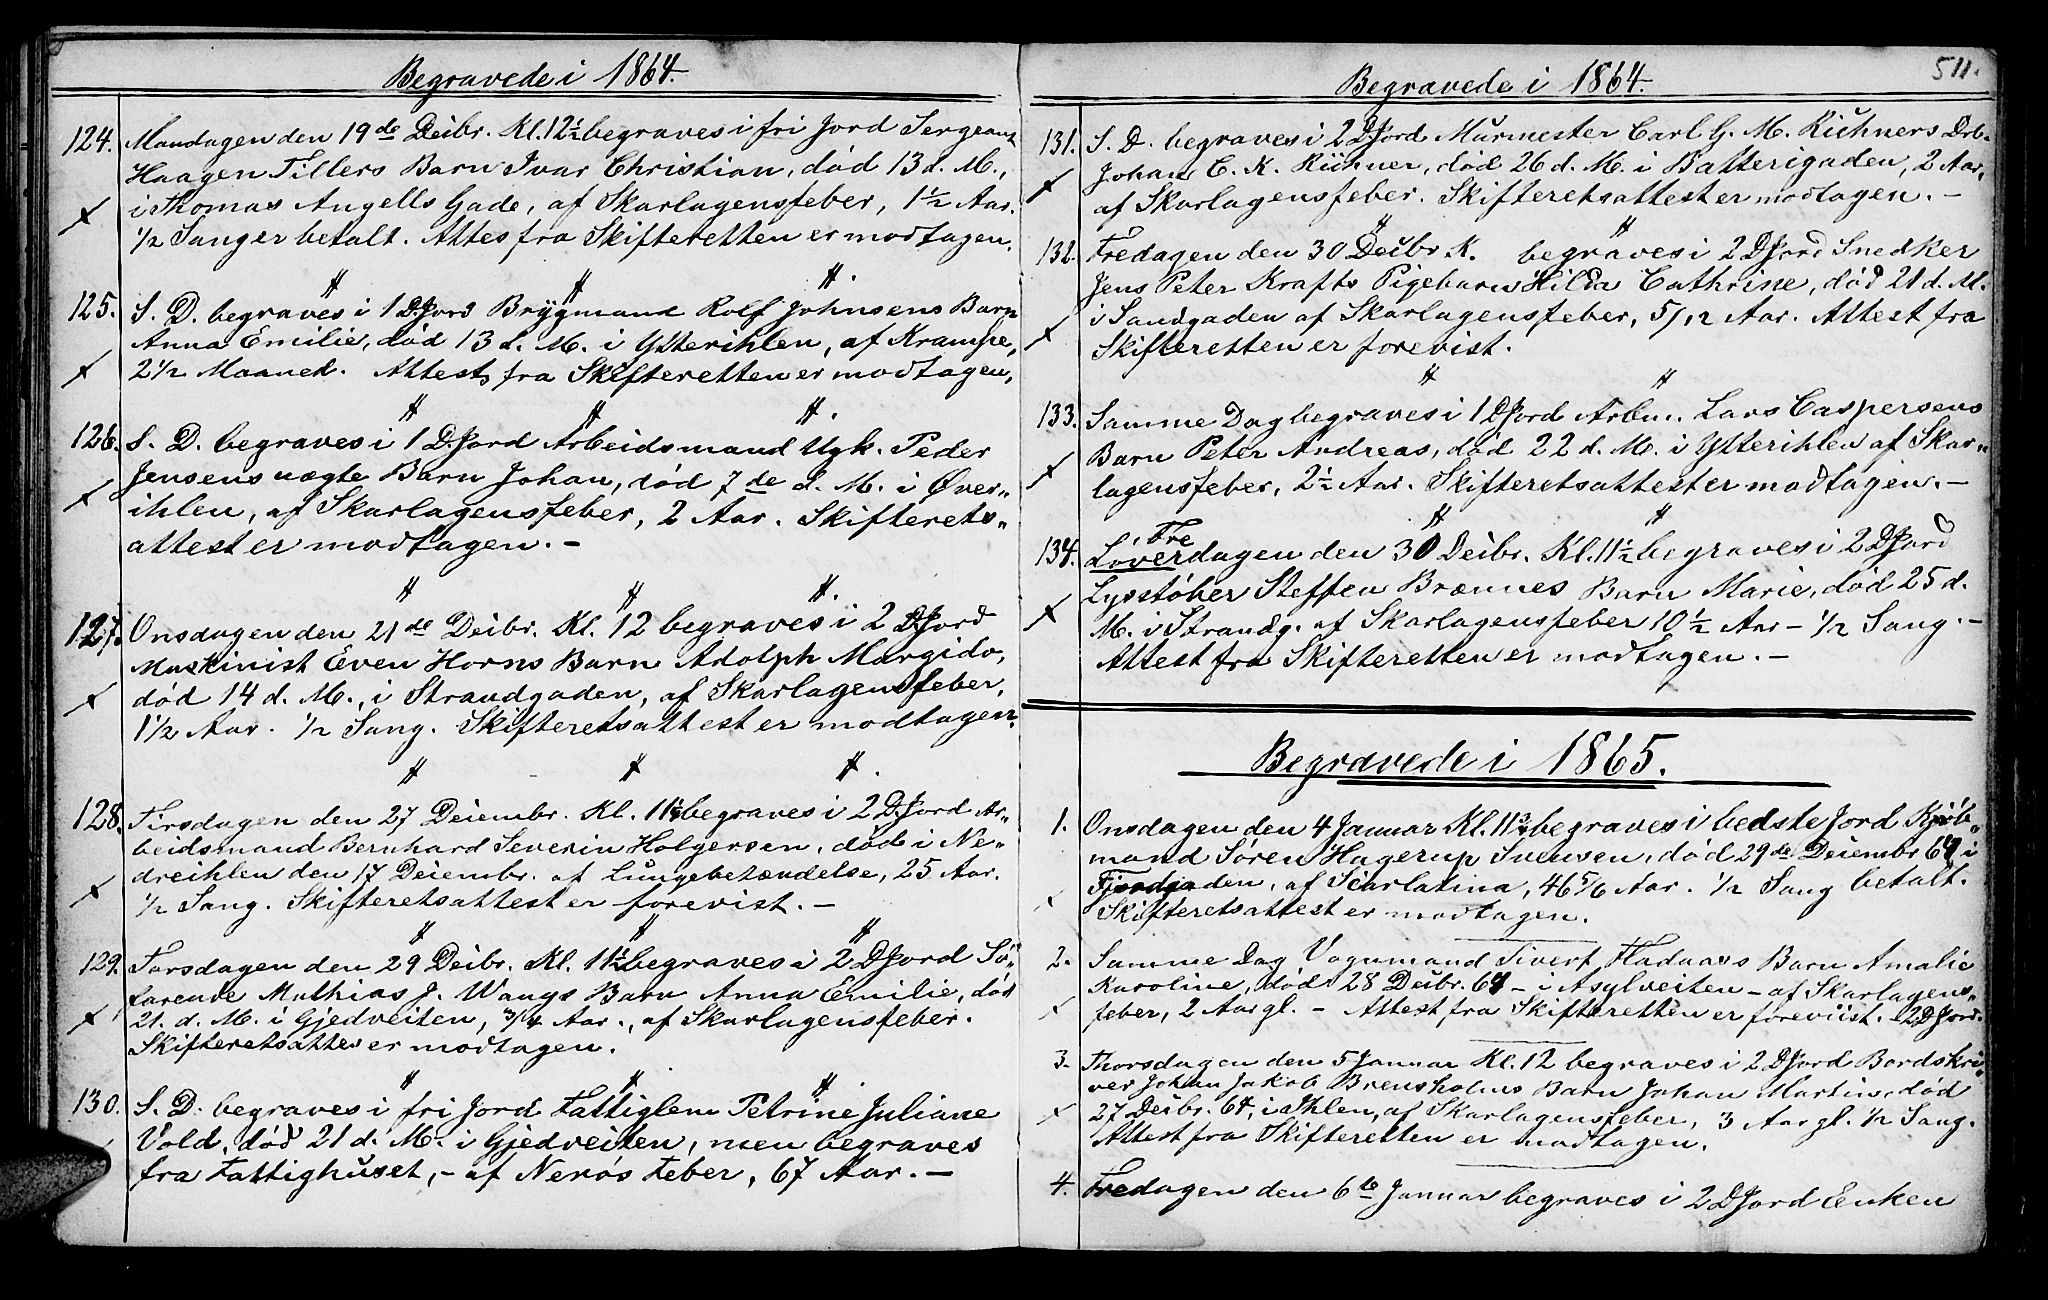 Begravede i 1864.
124. Mandagen den 19de Decbr. Kl. 12½ begraves i fri Jord Sergeant
Haagen Tillers Barn Ivar Christian, død 13 d. M.,
i Thomas Angells Gade, af Skarlagensfeber, 1½ Aar.
½ Sang er betalt. Attes fra Skifteretten er modtagen.
125. S. D. begraves i 1 D. Jord Brygmand Rolf Johnsens Barn
Anna Emilie, død 13 d. M. i Ytterihlen, af Krampe,
2½ Maaned. Attest fra Skifteretten er modtagen,
126. S. D. begraves i 1 D. Jord Arbeidsmand Ugk. Peder
Jensens uægte Barn Johan, død 7de d. M. i Øver„
ihlen, af Skarlagensfeber, 2 Aar. Skifterets„
attest er modtagen. –
127. Onsdagen den 21de Decbr. Kl. 12 begraves i 2 D Jord
Maskinist Even Horns Barn Adolph Margido,
død 14 d. M., i Strandgaden, af Skarlagensfeber,
1½ Aar. ½ Sang. Skifteretsattest er modtagen.
128. Tirsdagen den 27 Decembr. Kl. 11½ begraves i 2 D. Jord Ar„
beidsmand Bernhard Severin Holgersen, død i Ne„
dreihlen den 17 Decembr. af Lungebetændelse, 25 Aar.
½ Sang. Skifteretsattest er forevist. –
129. Torsdagen den 29 Decbr. Kl. 11½ begraves i 2 D Jord Sø„
farende Mathias J. Wangs Barn Anna Emilie, død
21. d. M. i Gjedveiten, 3/4 Aar., af Skarlagensfeber.
Skifteretsattes er modtagen.
130. S. D. begraves i fri Jord Fattiglem Petrine Juliane
Vold, død 21 d. M. i Gjedveiten, men begraves
fra Fattighuset, – af Nervøs Feber, 67 Aar. –
Begravede i 1864.
511.
131. S. D. begraves i 2 D Jord Murmester Carl G. M. Kühners Drb.
Johan C. K. Kühner, død 26 d. M. i Batterigaden, 2 Aar,
af Skarlagensfeber. Skifteretsattest er modtagen. –
132. Fredagen den 30 Decbr K. begraves i 2 D Jord Snedker
Jens Peter Krafts Pigebarn Hilda Cathrine, død 21 d. M.
i Sandgaden af Skarlagensfeber, 5/12 Aar. Attest fra
Skifteretten er forevist.
133. Samme Dag begraves i 1 D Jord Arbm. Lars Caspersens
Barn Peter Andreas, død 22 d. M. i Ytterihlen af Skar„
lagensfeber, 2½ Aar. Skifteretsattest er modtagen. –
Fre
134. Løverdagen den 30 Decbr. Kl. 11½ begraves i 2 D Jord
Lysstøber Steffen Brænnes Barn Marie, død 25 d.
M. i Strandg. af Skarlagensfeber 10½ Aar – ½ Sang. –
Attest fra Skifteretten er modtagen. –
Begravede i 1865.
1. Onsdagen den 4 Januar Kl. 11¾ begraves i bedste Jord Kjøb„
mand Søren Hagerup Svensen, død 29de Decembr 64 i
Fjordgaden, af Scarlatina, 46 5/6 Aar. ½ Sang betalt.
Skifteretsattest er modtagen.
2. Samme Dag Vognmand Sivert Hadaaas Barn Amalie
Karoline, død 28 Decbr. 64 – i Asylveiten – af Skarlagens„
feber, 2 Aar gl. – Attest fra Skifteretten er foreviist. – 2 D Jord.
3. Thorsdagen den 5 Januar Kl. 12 begraves i 2 D Jord Bordskri„
ver Johan Jakob Brensholms Barn Johan Martin, død
27 Decbr. 64, i Ihlen, af Skarlagensfeber, 3 Aar gl. ½ Sang.
Attest fra Skifteretten er modtagen.
4. Fredagen den 6te Januar begraves i 2 D Jord Enken